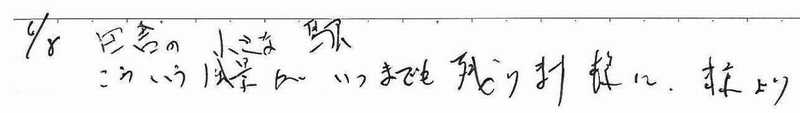 6/8 田舎の 小さな 駅
こういう風景がいつまでも残ります様に. 様より